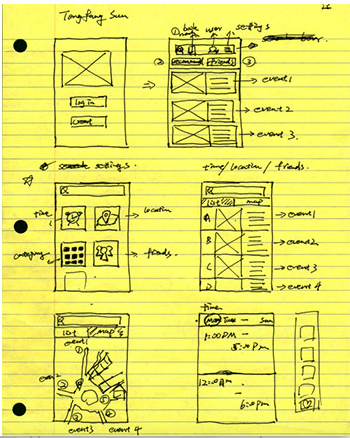 Tongfang Sun
26
user
settings
①
Log in
②
friends
③
→ event 1
→ event 2
→ event 3.
settings.
time/ location / friends.
time
→ location
category
→ friends
list
map
A
→ event 1
B
→ event 2
C
→ event 3
D
→ event 4
time
list
map
event 1
event 2
event 3
event 4
Sun
1:00 PM
5:00 PM
12:00 AM
6:00 PM